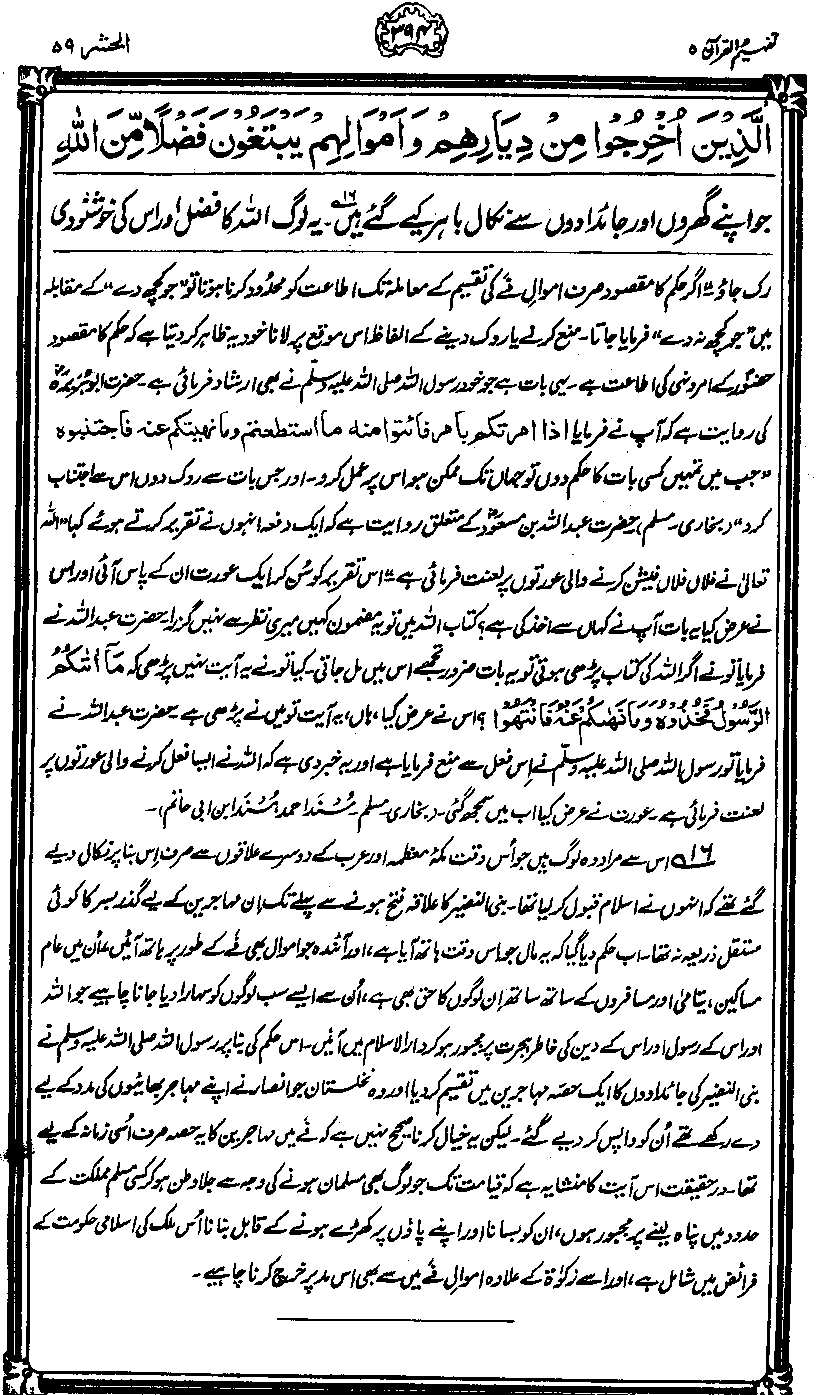 تفہیم القرآن ۵
۳۹۴
الحشر ۵۹
الَّذِيْنَ اُخْرِجُوْا مِنْ دِيَارِهِمْ وَاَمْوَالِهِمْ يَبْتَغُوْنَ فَضْلًا مِّنَ اللّٰهِ
جو اپنے گھروں اور جائدادوں سے نکال باہر کیے گئے ہیں۔۱۶ یہ لوگ اللہ کا فضل اور اس کی خوشنودی
رک جاؤ"۔ اگر حکم کا مقصود صرف اموالِ فَے کی تقسیم کے معاملہ تک اطاعت کو محدود کرنا ہوتا تو "جو کچھ دے" کے مقابلہ
میں "جو کچھ نہ دے" فرمایا جاتا۔ منع کرنے یا روک دینے کے الفاظ اس موقع پر لانا خود یہ ظاہر کر دیتا ہے کہ حکم کا مقصود
حضورؐ کے امر و نہی کی اطاعت ہے۔ یہی بات ہے جو خود رسول اللہ صلی اللہ علیہ وسلم نے بھی ارشاد فرمائی ہے۔ حضرت ابوہریرہؓ
کی روایت ہے کہ آپ نے فرمایا اذا امرتكم بامر فائتوا منه ما استطعتم وما نهيتكم عنه فاجتنبوه
"جب میں تمہیں کسی بات کا حکم دوں تو جہاں تک ممکن ہو اس پر عمل کرو۔ اور جس بات سے روک دوں اس سے اجتناب
کرو" (بخاری۔ مسلم)۔ حضرت عبداللہ بن مسعودؓ کے متعلق روایت ہے کہ ایک دفعہ انہوں نے تقریر کرتے ہوئے کہا "اللہ
تعالیٰ نے فلاں فلاں فیشن کرنے والی عورتوں پر لعنت فرمائی ہے"۔ اس تقریر کو سُن کر ایک عورت ان کے پاس آئی اور اس
نے عرض کیا یہ بات آپ نے کہاں سے اخذ کی ہے؟ کتاب اللہ میں تو یہ مضمون کہیں میری نظر سے نہیں گزرا۔ حضرت عبداللہ نے
فرمایا تو نے اگر اللہ کی کتاب پڑھی ہوتی تو یہ بات ضرور تجھے اس میں مل جاتی۔ کیا تو نے یہ آیت نہیں پڑھی کہ مَآ اٰتٰىكُمُ
الرَّسُوْلُ فَخُذُوْهُ وَمَا نَهٰىكُمْ عَنْهُ فَانْتَهُوْا ؟ اس نے عرض کیا، ہاں، یہ آیت تو میں نے پڑھی ہے۔ حضرت عبداللہ نے
فرمایا تو رسول اللہ صلی اللہ علیہ وسلم نے اِس فعل سے منع فرمایا ہے اور یہ خبر دی ہے کہ اللہ نے ایسا فعل کرنے والی عورتوں پر
لعنت فرمائی ہے۔ عورت نے عرض کیا اب میں سمجھ گئی۔ (بخاری۔ مسلم۔ مُسنَد احمد۔ مُسنَد ابن ابی حاتم)۔
۱۶ اس سے مراد وہ لوگ ہیں جو اُس وقت مکہ معظمہ اور عرب کے دوسرے علاقوں سے صرف اِس بنا پر نکال دیے
گئے تھے کہ انہوں نے اسلام قبول کر لیا تھا۔ بنی النضیر کا علاقہ فتح ہونے سے پہلے تک اِن مہاجرین کے لیے گذر بسر کا کوئی
مستقل ذریعہ نہ تھا۔ اب حکم دیا گیا کہ یہ مال جو اس وقت ہاتھ آیا ہے، اور آئندہ جو اموال بھی فَے کے طور پر ہاتھ آئیں، اُن میں عام
مساکین، یتامیٰ اور مسافروں کے ساتھ ساتھ اِن لوگوں کا حق بھی ہے، اُن سے ایسے سب لوگوں کو سہارا دیا جانا چاہیے جو اللہ
اور اس کے رسول اور اس کے دین کی خاطر ہجرت پر مجبور ہو کر دارالاسلام میں آئیں۔ اس حکم کی بنا پر رسول اللہ صلی اللہ علیہ وسلم نے
بنی النضیر کی جائدادوں کا ایک حصہ مہاجرین میں تقسیم کر دیا اور وہ نخلستان جو انصار نے اپنے مہاجر بھائیوں کی مدد کے لیے
دے رکھے تھے اُن کو واپس کر دیے گئے۔ لیکن یہ خیال کرنا صحیح نہیں ہے کہ فَے میں مہاجرین کا یہ حصہ صرف اُسی زمانہ کے لیے
تھا۔ درحقیقت اس آیت کا منشا یہ ہے کہ قیامت تک جو لوگ بھی مسلمان ہونے کی وجہ سے جلاوطن ہو کر کسی مسلم مملکت کے
حدود میں پناہ لینے پر مجبور ہوں، ان کو بسانا اور اپنے پاؤں پر کھڑے ہونے کے قابل بنانا اُس ملک کی اسلامی حکومت کے
فرائض میں شامل ہے، اور اسے زکوٰۃ کے علاوہ اموالِ فَے میں سے بھی اس مد پر خرچ کرنا چاہیے۔